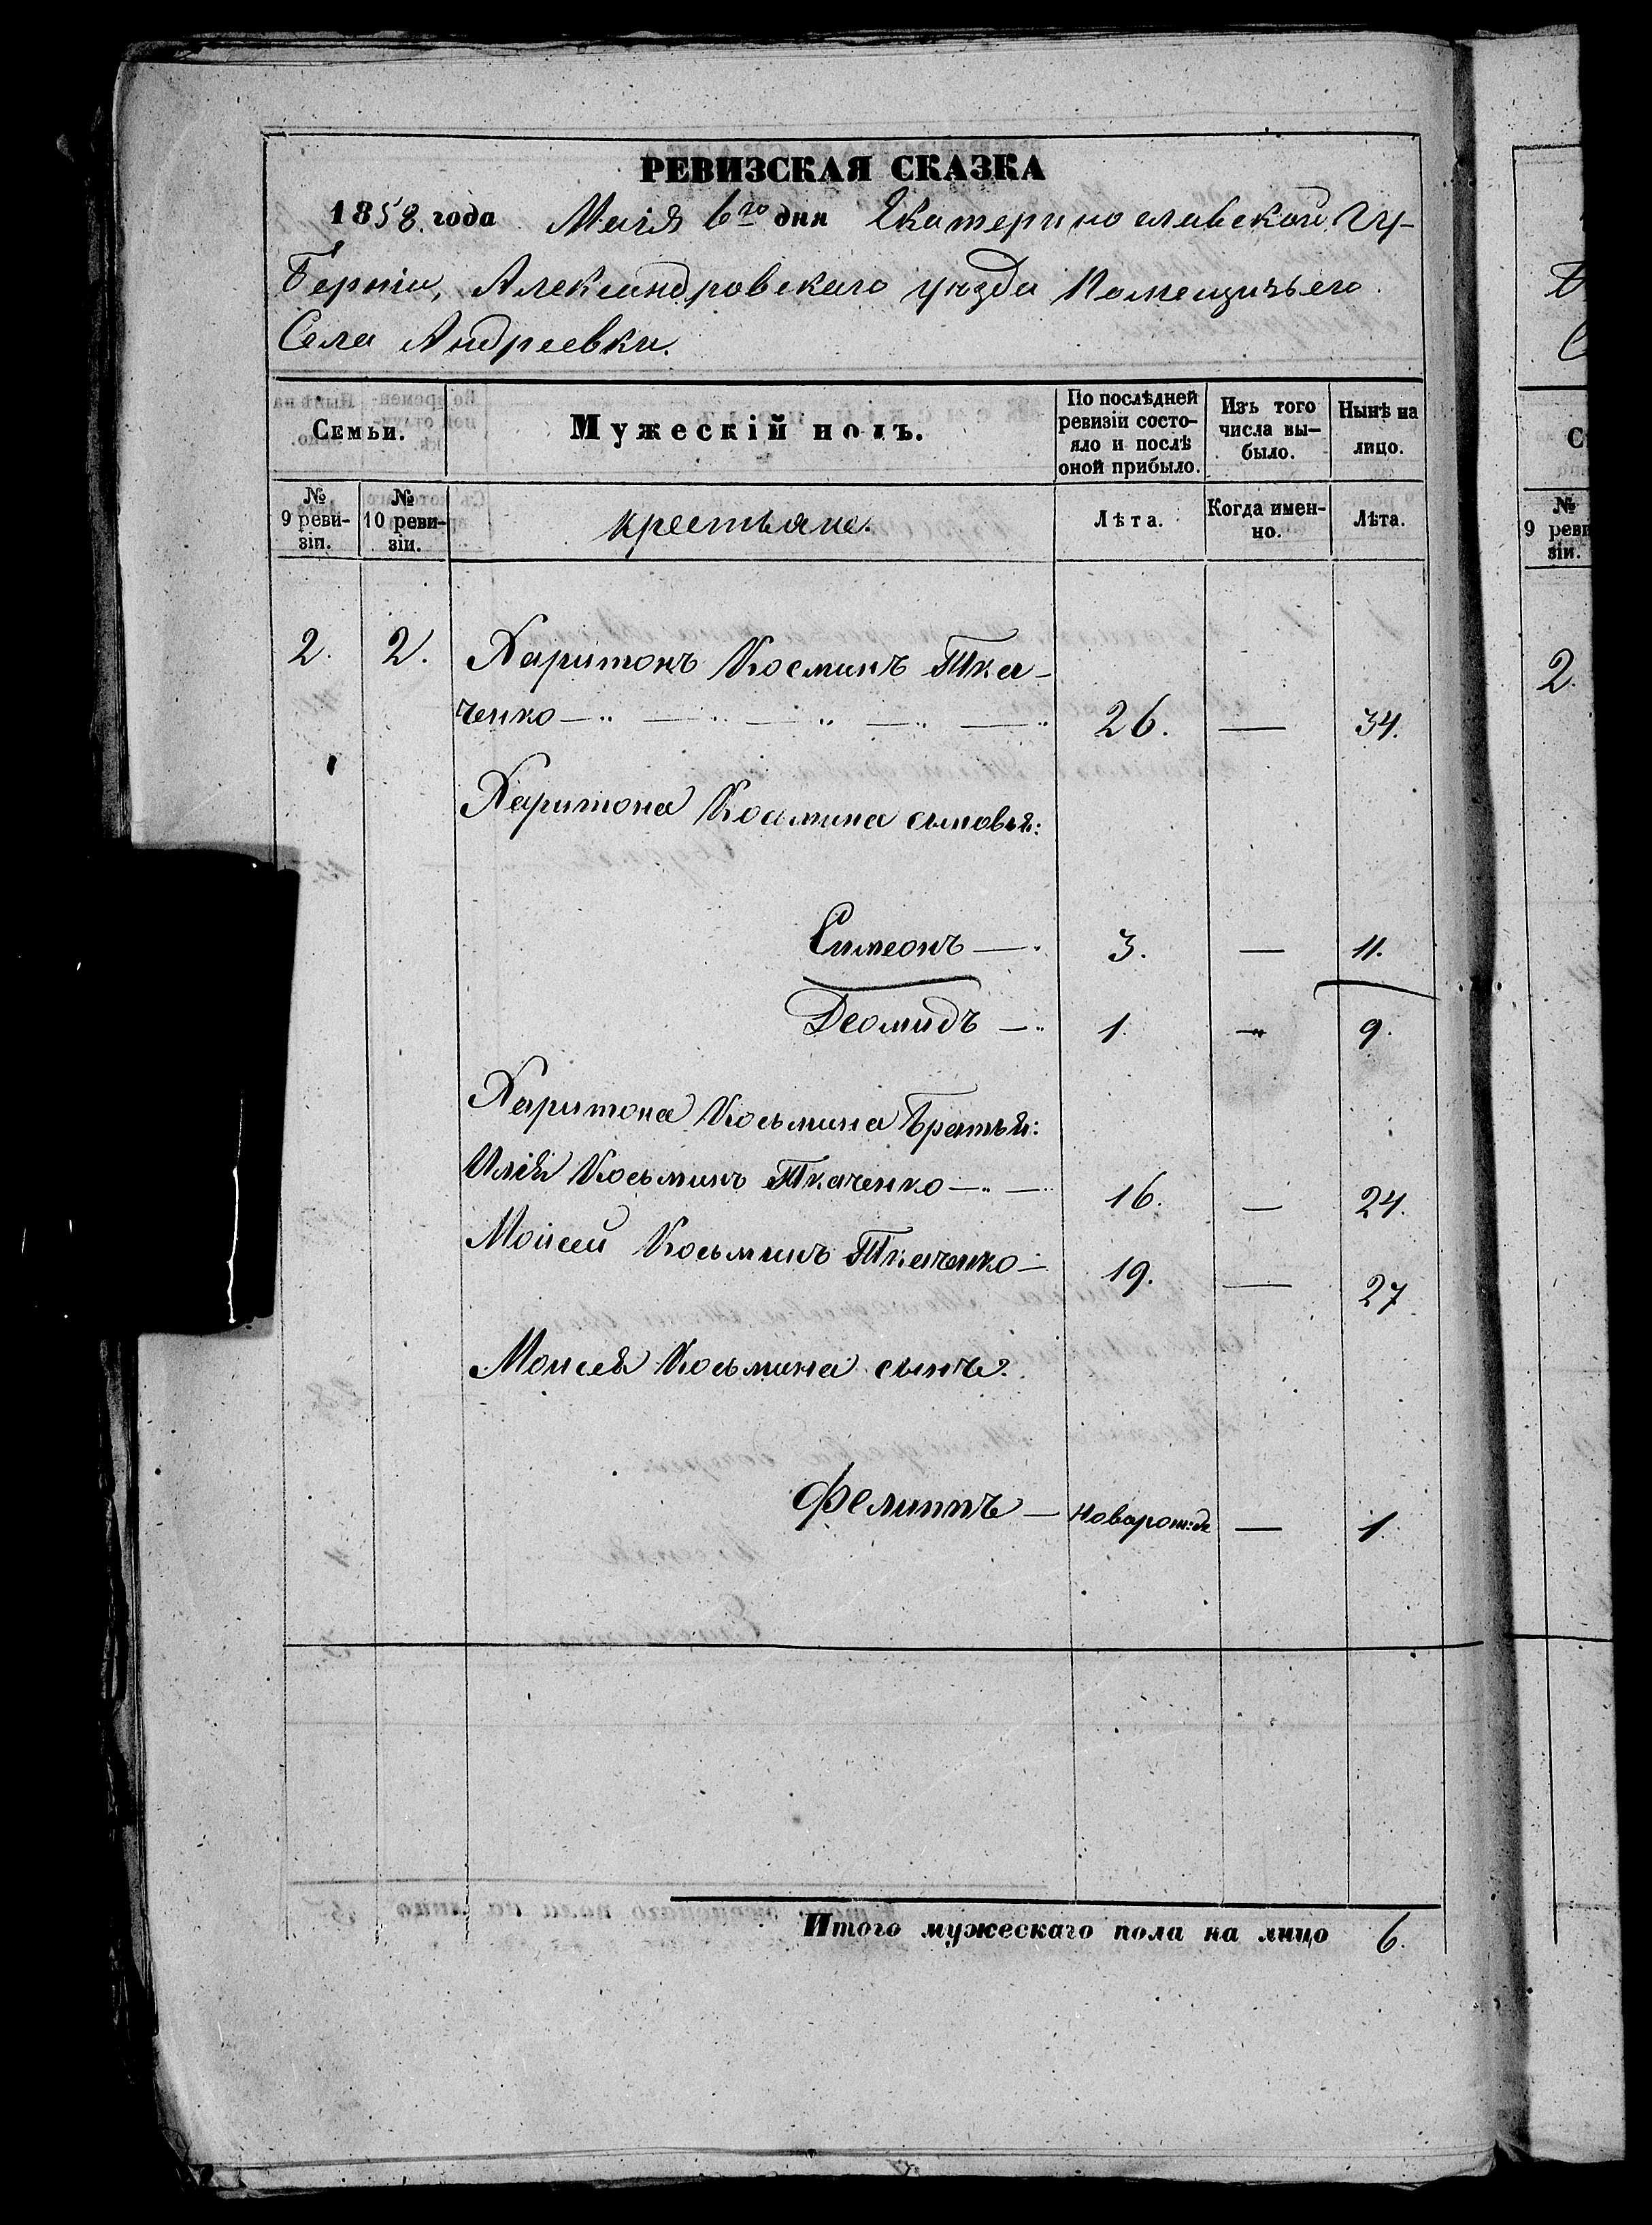 РЕВИЗСКАЯ СКАЗКА
1858. года Маія 6го дня Екатеринославской Гу-
берніи, Александровскаго уѣзда Помещичьего
Села Андреевки.
Семьи.
Мужескій полъ.
По послѣдней ревизіи состо-
яло и послѣ оной прибыло.
Изъ того числа вы-
было.
Нынѣ на лицо.
№ 9 реви-
зіи.
№ 10 реви-
зіи.
крестьяне.
Лѣта.
Когда имен-
но.
Лѣта.
2. 2. Харитонъ Косминъ Тка-
ченко — 26. — 34.
Харитона Космина сыновья:
Симеонъ — 3. — 11.
Деомидъ — 1. — 9.
Харитона Косьмина Братья:
Илія Косьминъ Ткаченко — 16. — 24.
Моисей Косьминъ Ткаченко — 19. — 27
Моисея Косьмина сынъ.
Фелиппъ — — 1.
Итого мужескаго пола на лицо 6.
2.
№
9 реви
зіи.